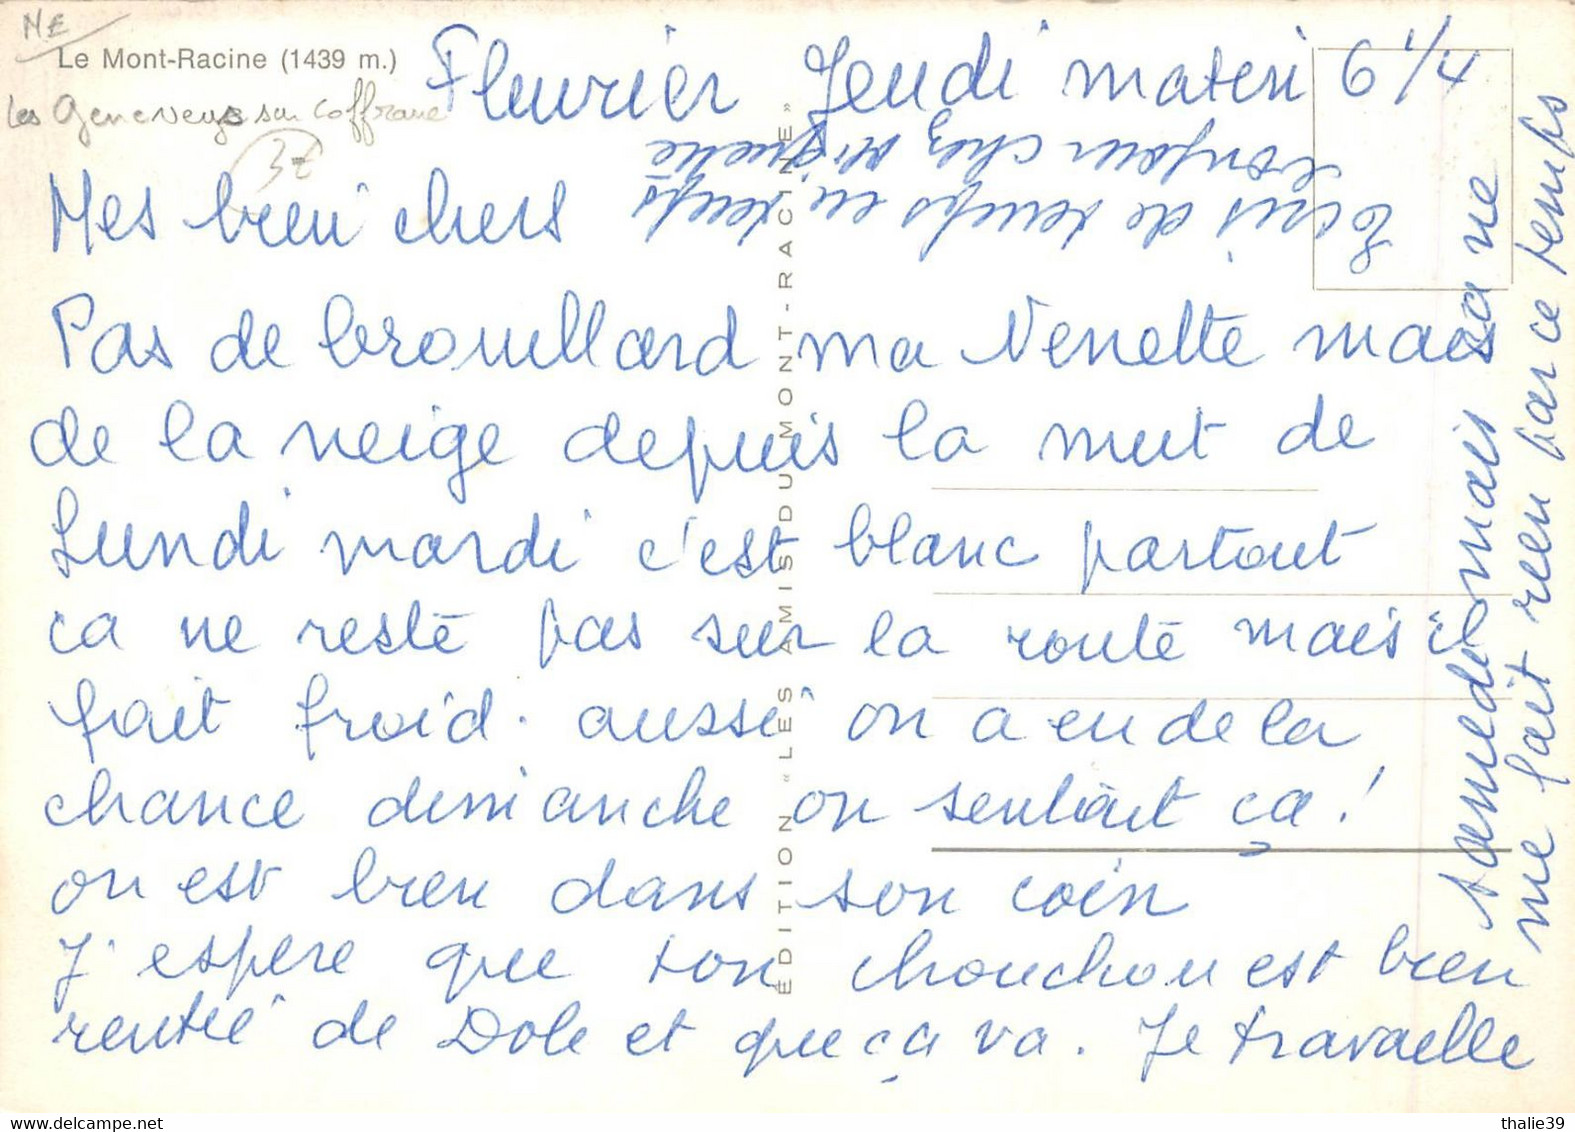 NE
Le Mont-Racine (1439 m.)
Les Geneveys sur Coffrane
3€
Fleurier Jeudi matin 6 1/4
Mes bien chers
Pas de brouillard ma Nenette mais
de la neige depuis la nuit de
Lundi mardi c'est blanc partout
ca ne reste pas sur la route mais il
fait froid. aussi on a eu de la
chance dimanche on sentait ça!
on est bien dans son coin
J'espere que ton chouchou est bien
rentré de Dole et que ça va. Je travaille
samedi mais ça ne
me fait rien par ce temps
Ecris de temps en temps
bonjour chez Miquette
ÉDITION «LES AMIS DU MONT-RACINE»
thalie39